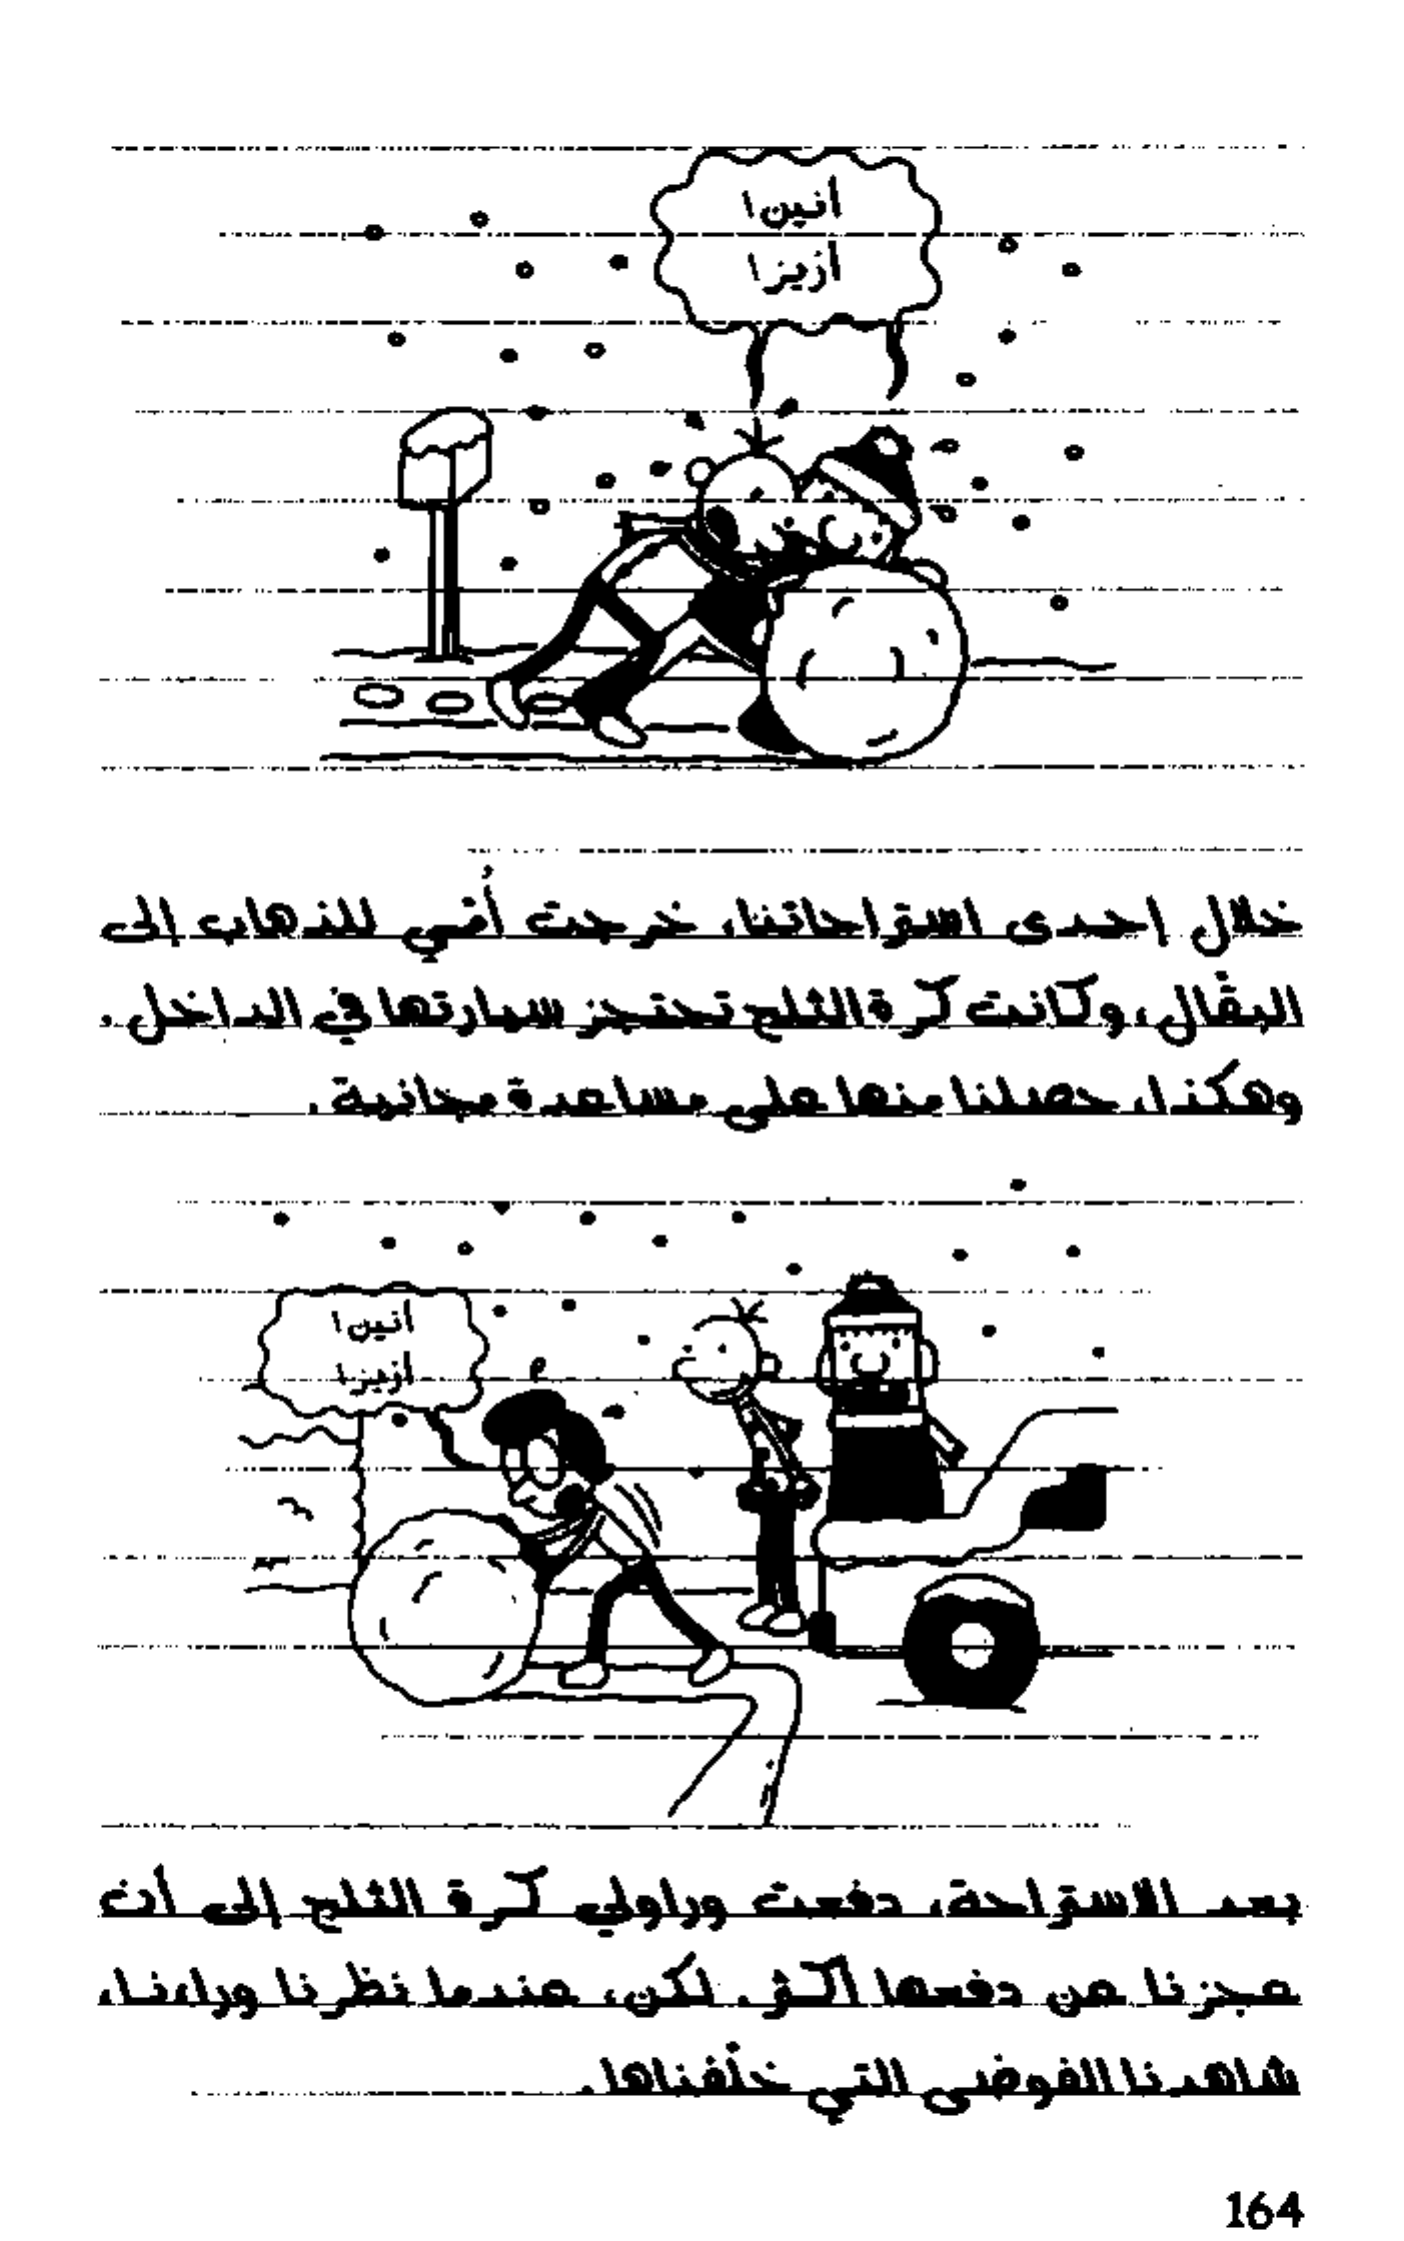 أنين!
أزيز!
خلال إحدى استراحاتنا، خرجت أُمّي للذهاب إلى
البقّال، وكانت كرة الثلج تحتجز سيارتها في الداخل.
وهكذا، حصلنا منها على مساعدة مجانية.
أنين!
أزيز!
بعد الاستراحة، دفعت وراولي كرة الثلج إلى أن
عجزنا عن دفعها أكثر. لكن، عندما نظرنا وراءنا،
شاهدنا الفوضى التي خلّفناها.
164